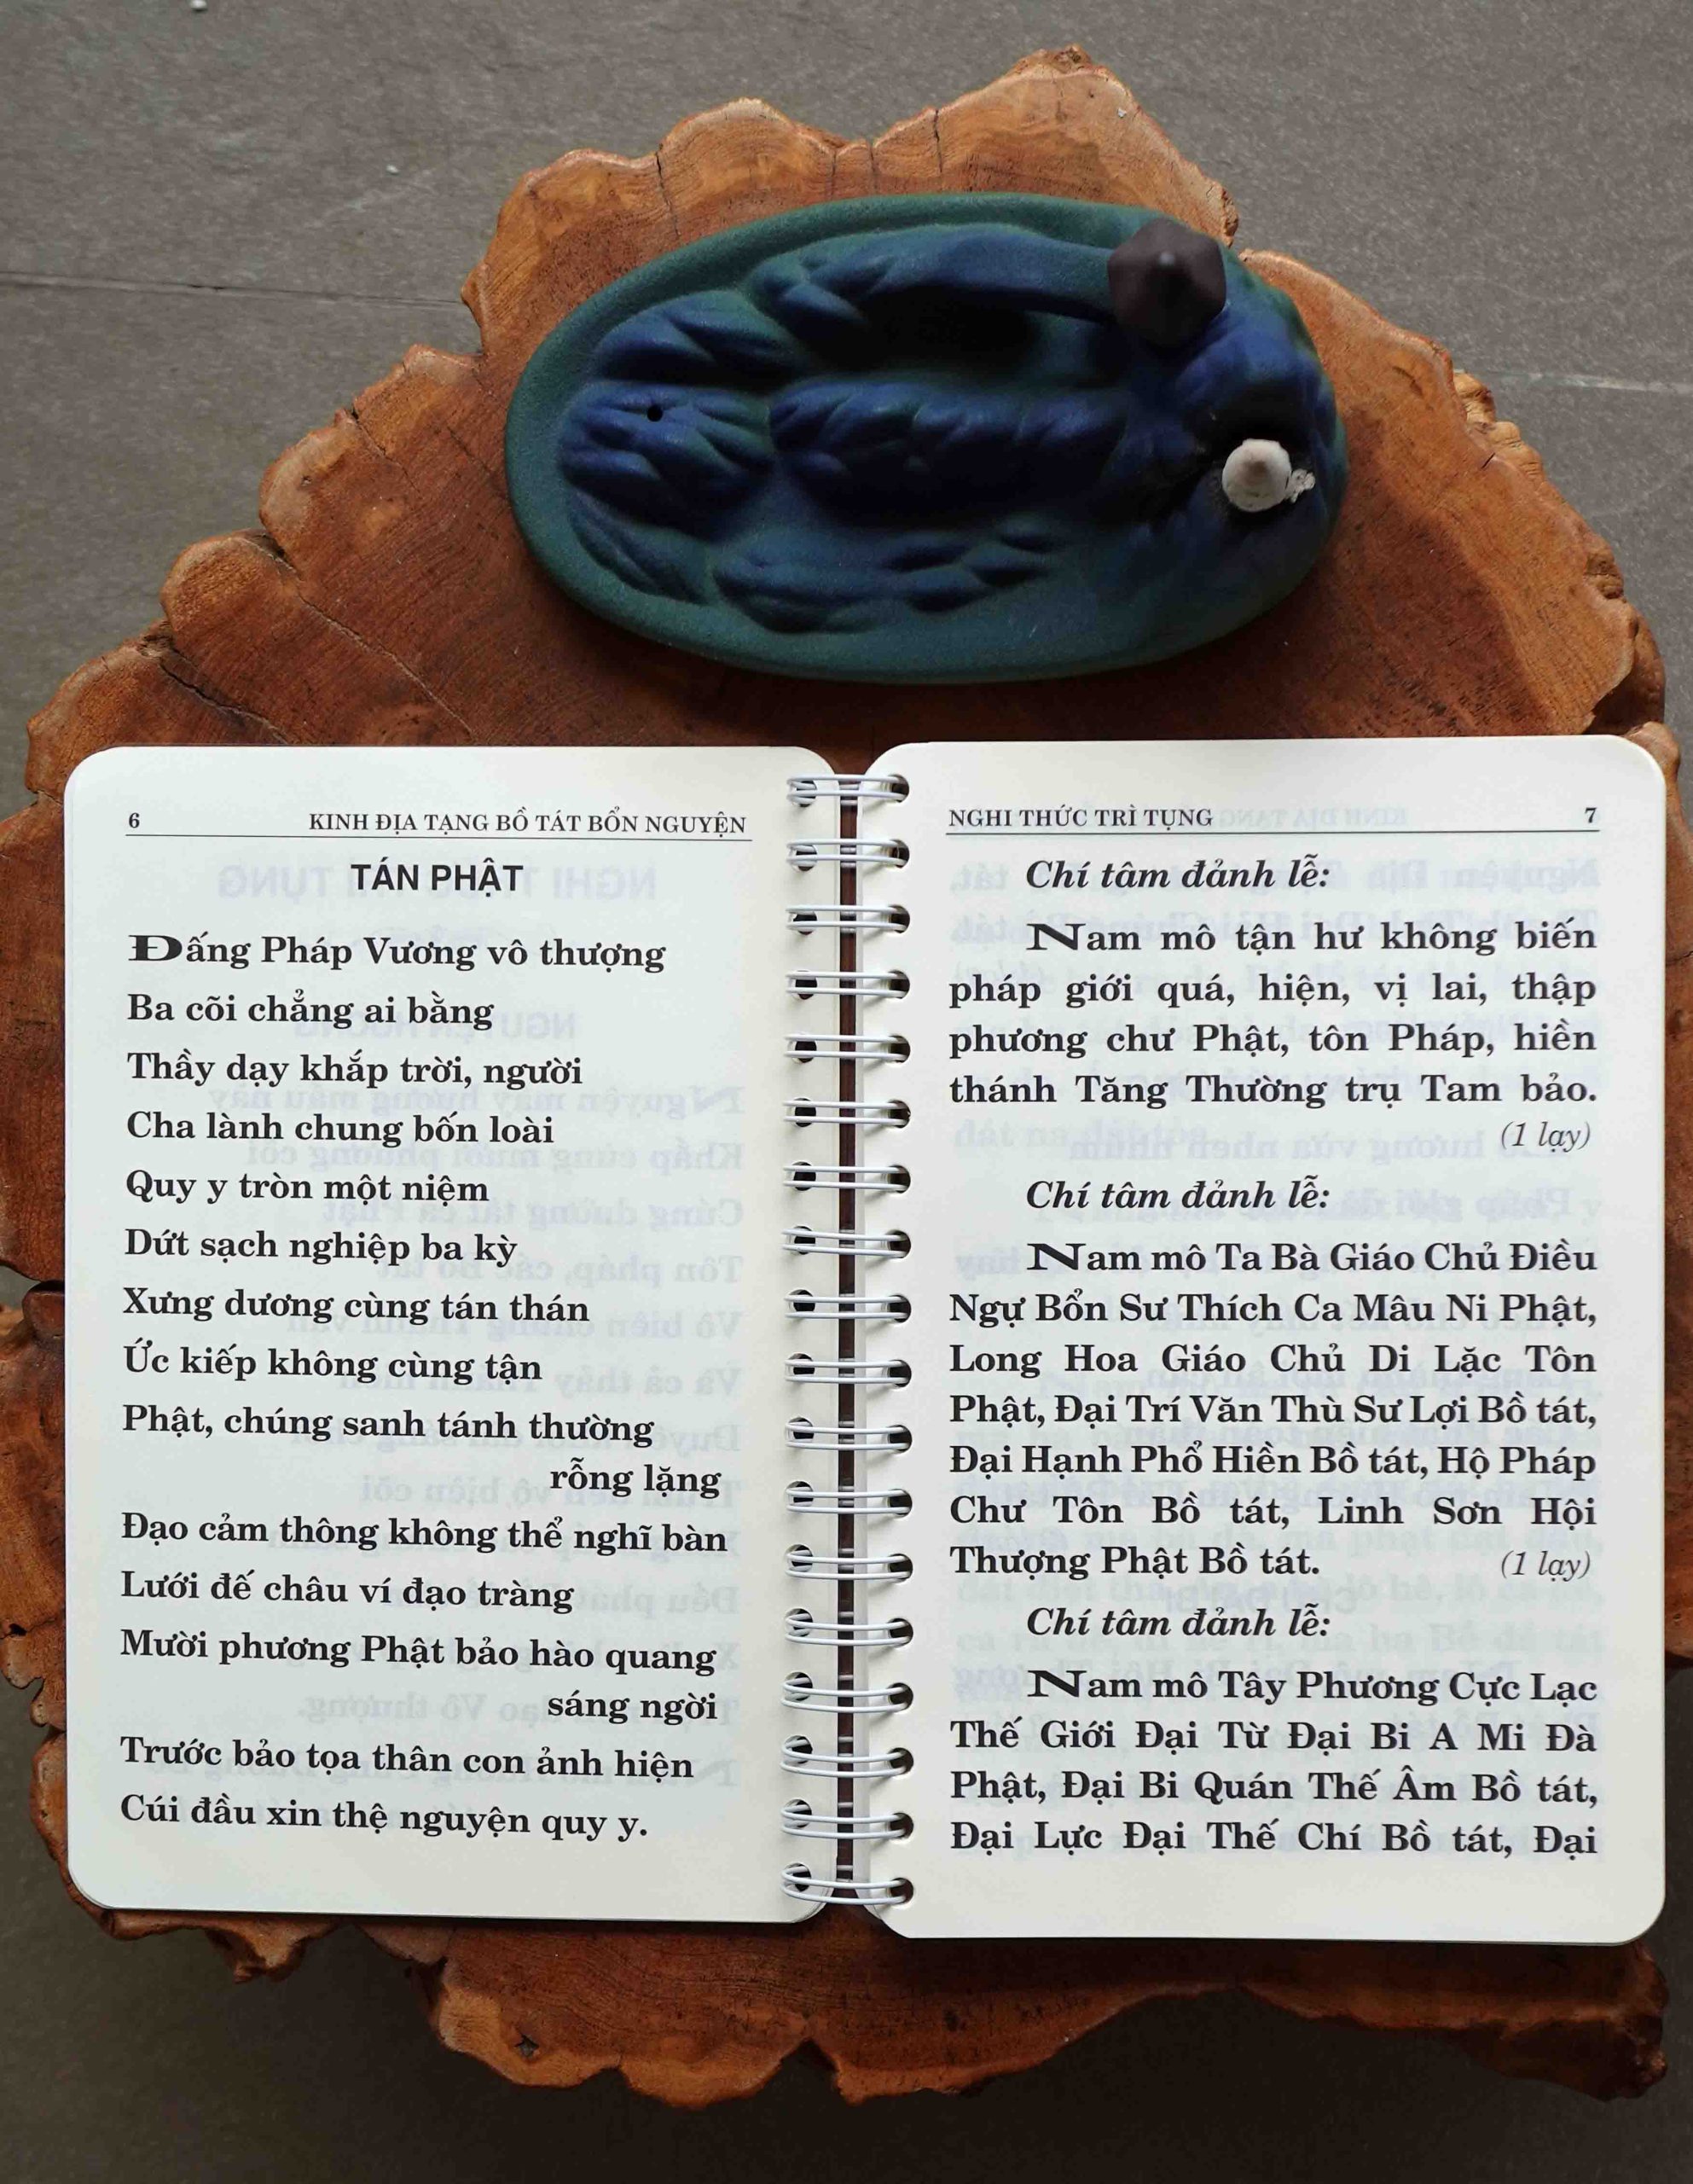 6 KINH ĐỊA TẠNG BỒ TÁT BỔN NGUYỆN
TÁN PHẬT
Đấng Pháp Vương vô thượng
Ba cõi chẳng ai bằng
Thầy dạy khắp trời, người
Cha lành chung bốn loài
Quy y tròn một niệm
Dứt sạch nghiệp ba kỳ
Xưng dương cùng tán thán
Ức kiếp không cùng tận
Phật, chúng sanh tánh thường
rỗng lặng
Đạo cảm thông không thể nghĩ bàn
Lưới đế châu ví đạo tràng
Mười phương Phật bảo hào quang
sáng ngời
Trước bảo tọa thân con ảnh hiện
Cúi đầu xin thệ nguyện quy y.
NGHI THỨC TRÌ TỤNG 7
Chí tâm đảnh lễ:
Nam mô tận hư không biến
pháp giới quá, hiện, vị lai, thập
phương chư Phật, tôn Pháp, hiền
thánh Tăng Thường trụ Tam bảo.
(1 lạy)
Chí tâm đảnh lễ:
Nam mô Ta Bà Giáo Chủ Điều
Ngự Bổn Sư Thích Ca Mâu Ni Phật,
Long Hoa Giáo Chủ Di Lặc Tôn
Phật, Đại Trí Văn Thù Sư Lợi Bồ tát,
Đại Hạnh Phổ Hiền Bồ tát, Hộ Pháp
Chư Tôn Bồ tát, Linh Sơn Hội
Thượng Phật Bồ tát. (1 lạy)
Chí tâm đảnh lễ:
Nam mô Tây Phương Cực Lạc
Thế Giới Đại Từ Đại Bi A Mi Đà
Phật, Đại Bi Quán Thế Âm Bồ tát,
Đại Lực Đại Thế Chí Bồ tát, Đại